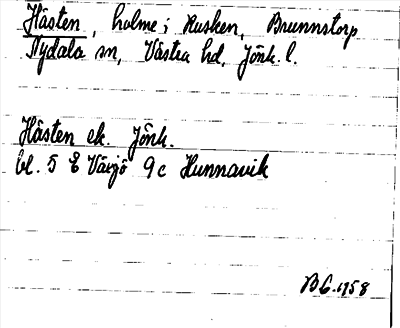 Hästen, holme i Rusken, Brunnstorp
Nydala sn, Västra hd, Jönk. l.
Hästen ek. Jönk.
bl. 5 E Värjö 9c Hunnavik
BG. 1958